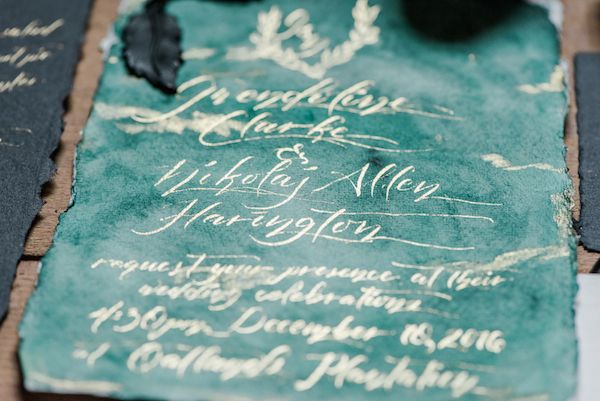 Gwendiline
Clarke
&
Nikolaj Allen
Harington
request your presence at their
wedding celebrations
4:30pm December 18, 2016
at Oatlands Plantation